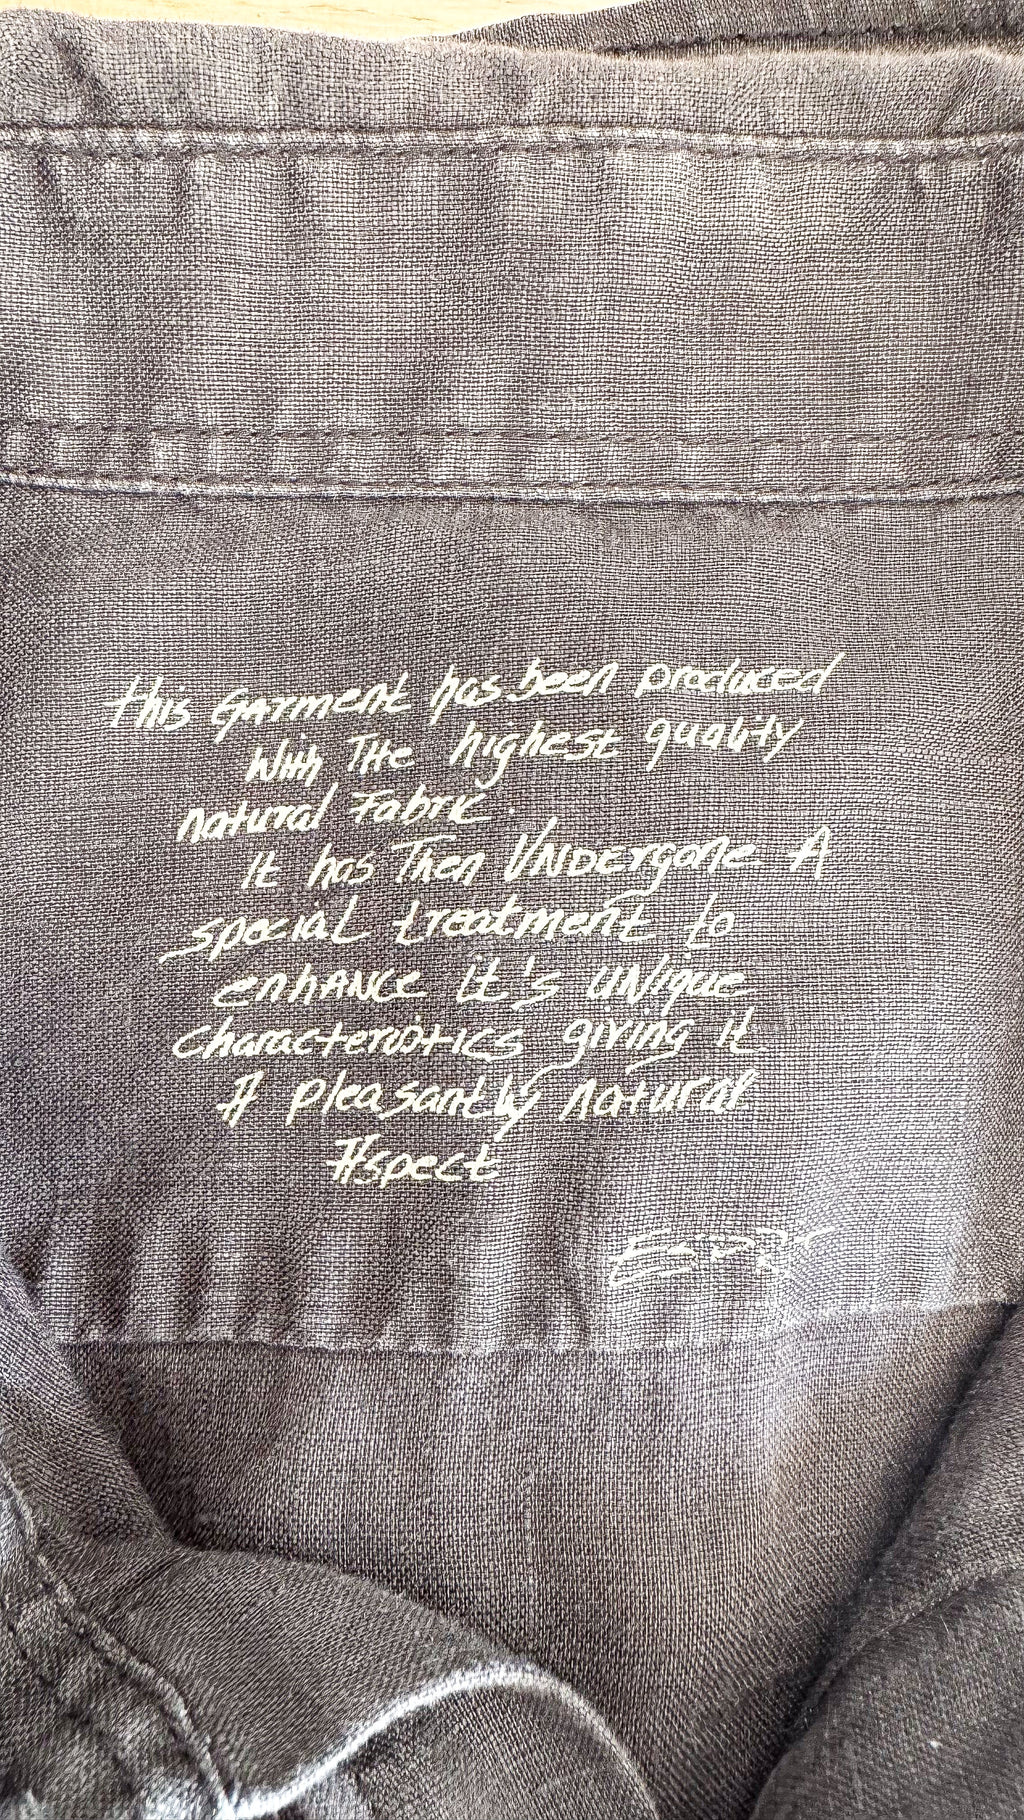 This Garment has been produced
With The highest quality
natural Fabric.
It has Then UNDergone A
special treatment to
enhance it's UNique
characteristics giving it
A pleasantly natural
Aspect